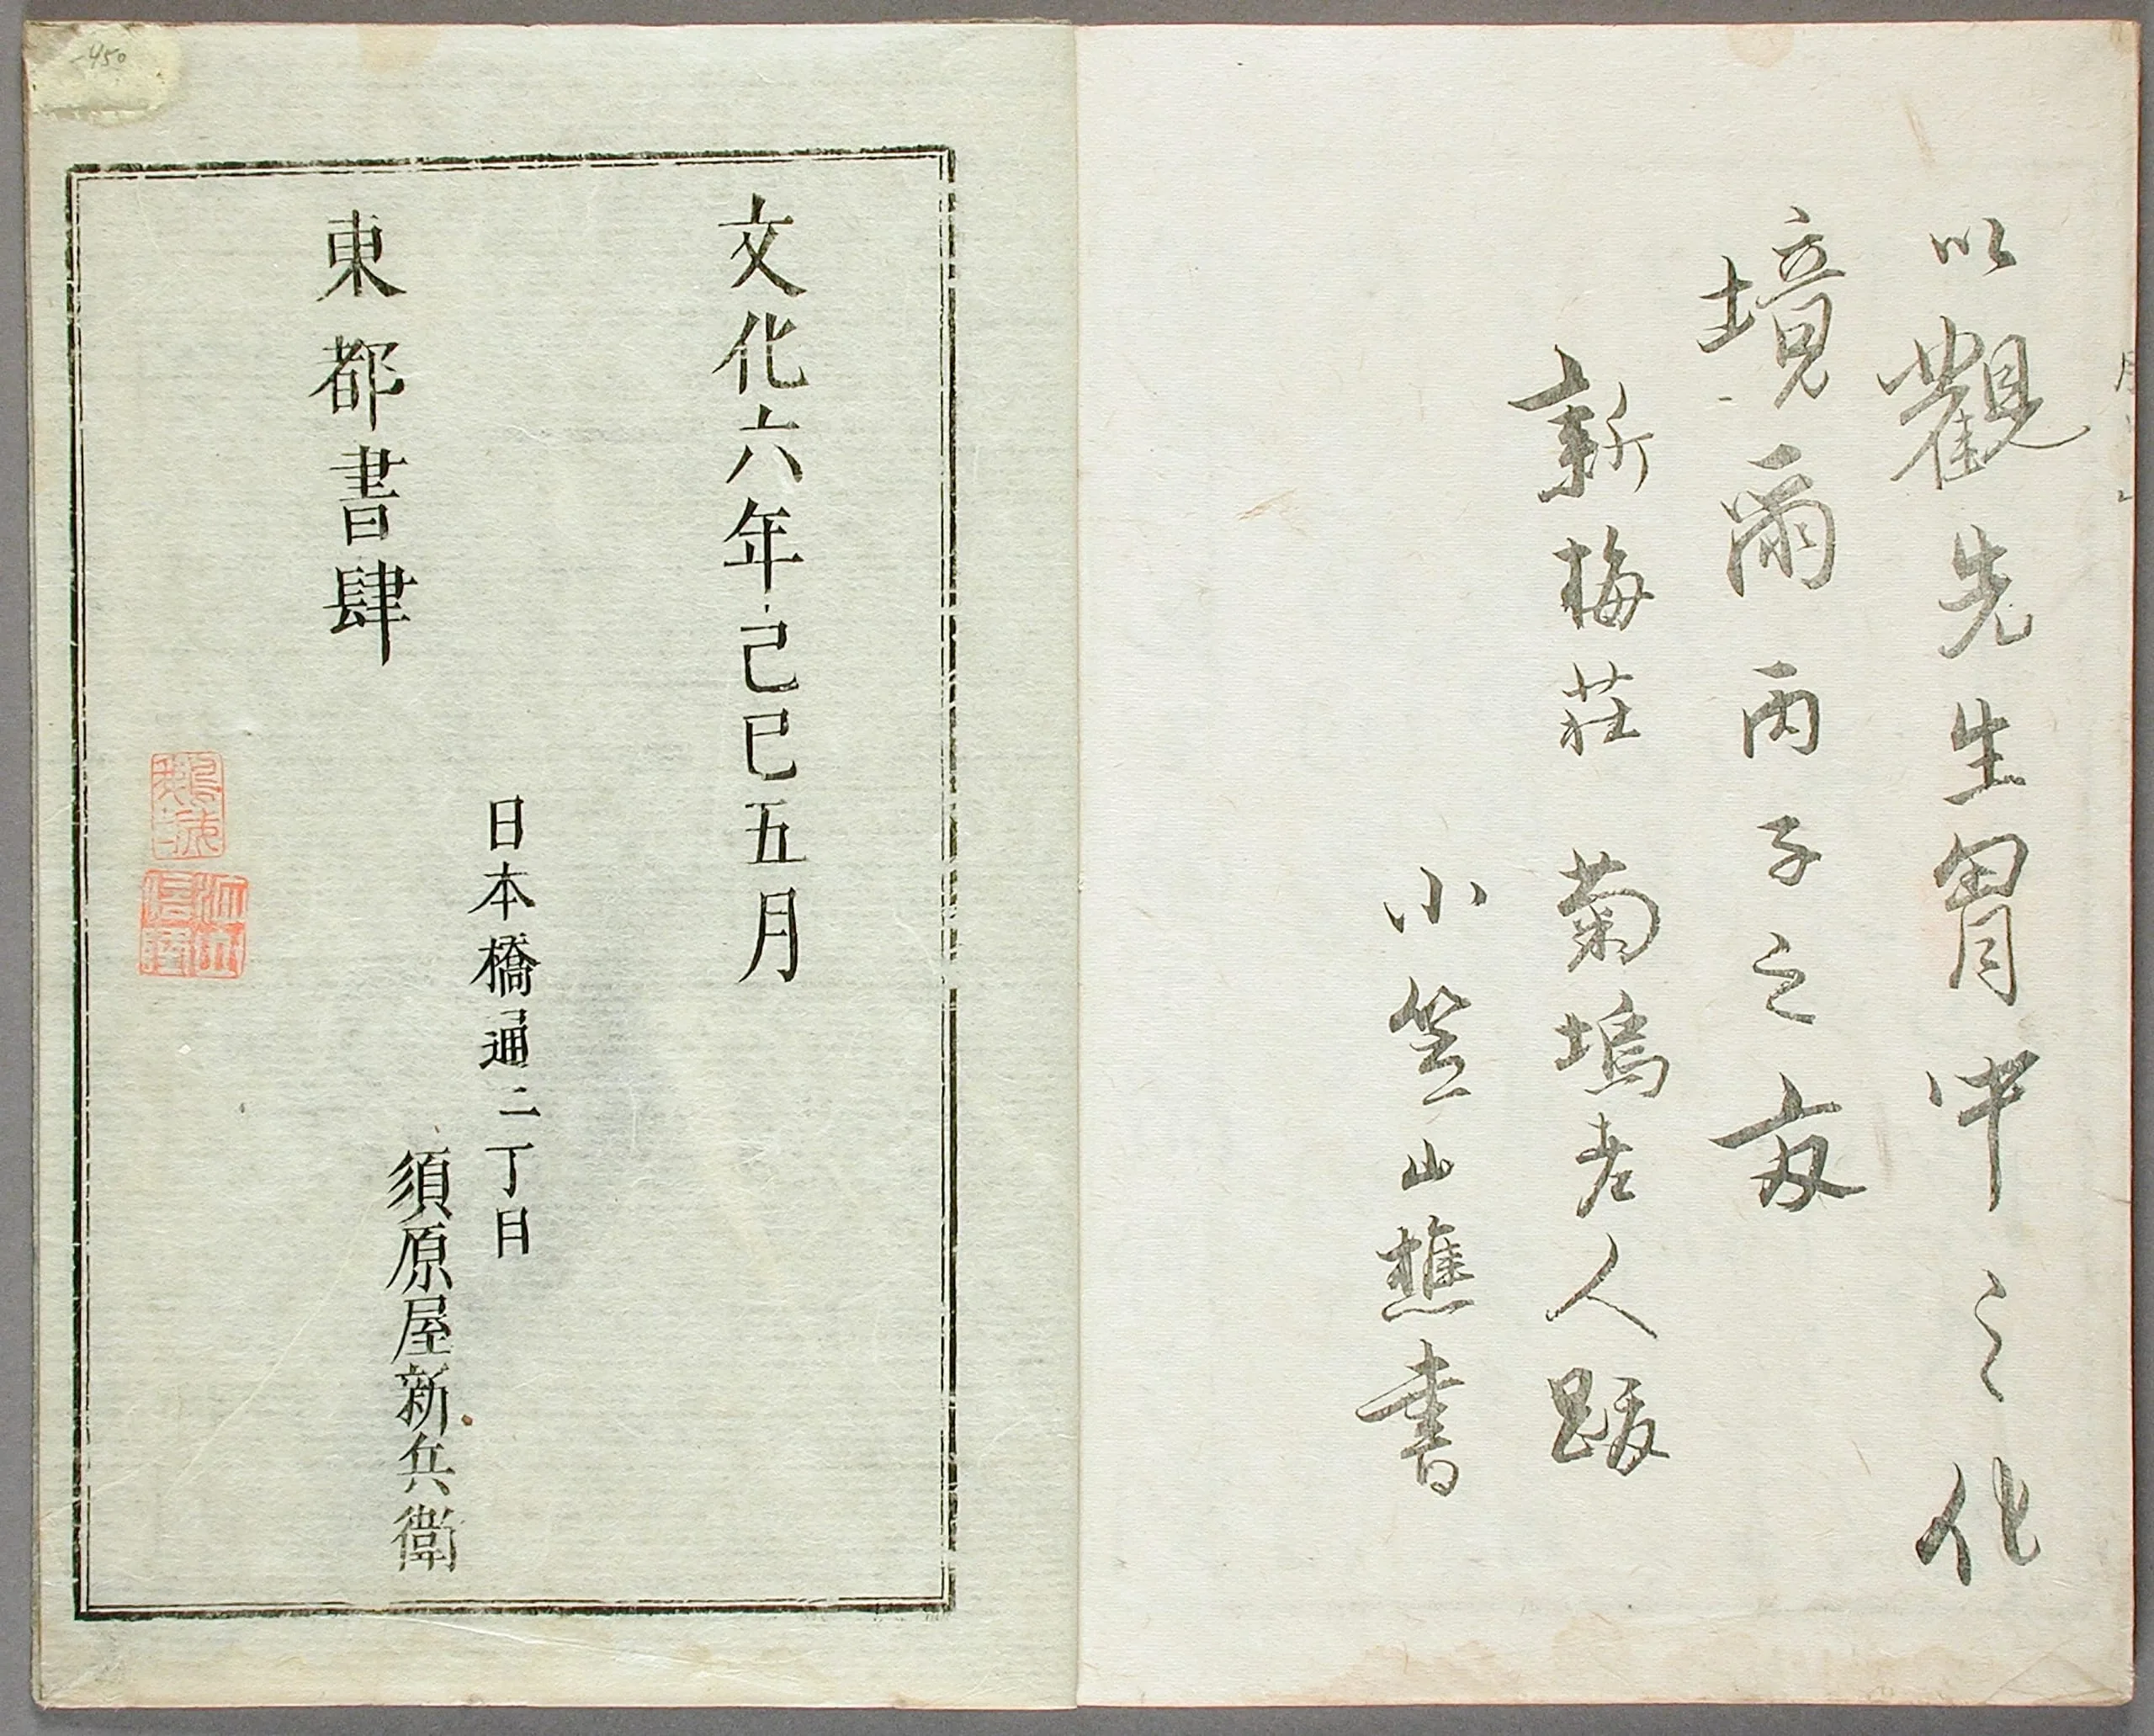 以觀先生胷中之化
境爾丙子之夏
新梅荘 菊塢老人跋
小笠山樵書
文化六年己巳五月
日本橋通二丁目
須原屋新兵衛
東都書肆
-450